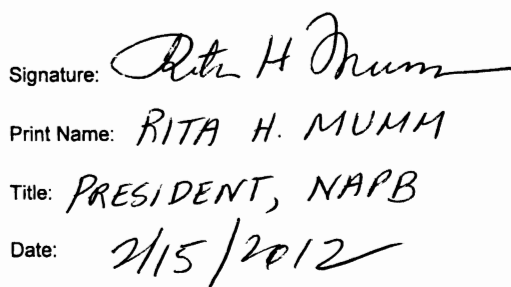 Signature: Rita H Mumm
Print Name: RITA H. MUMM
Title: PRESIDENT, NAPB
Date: 2/15/2012